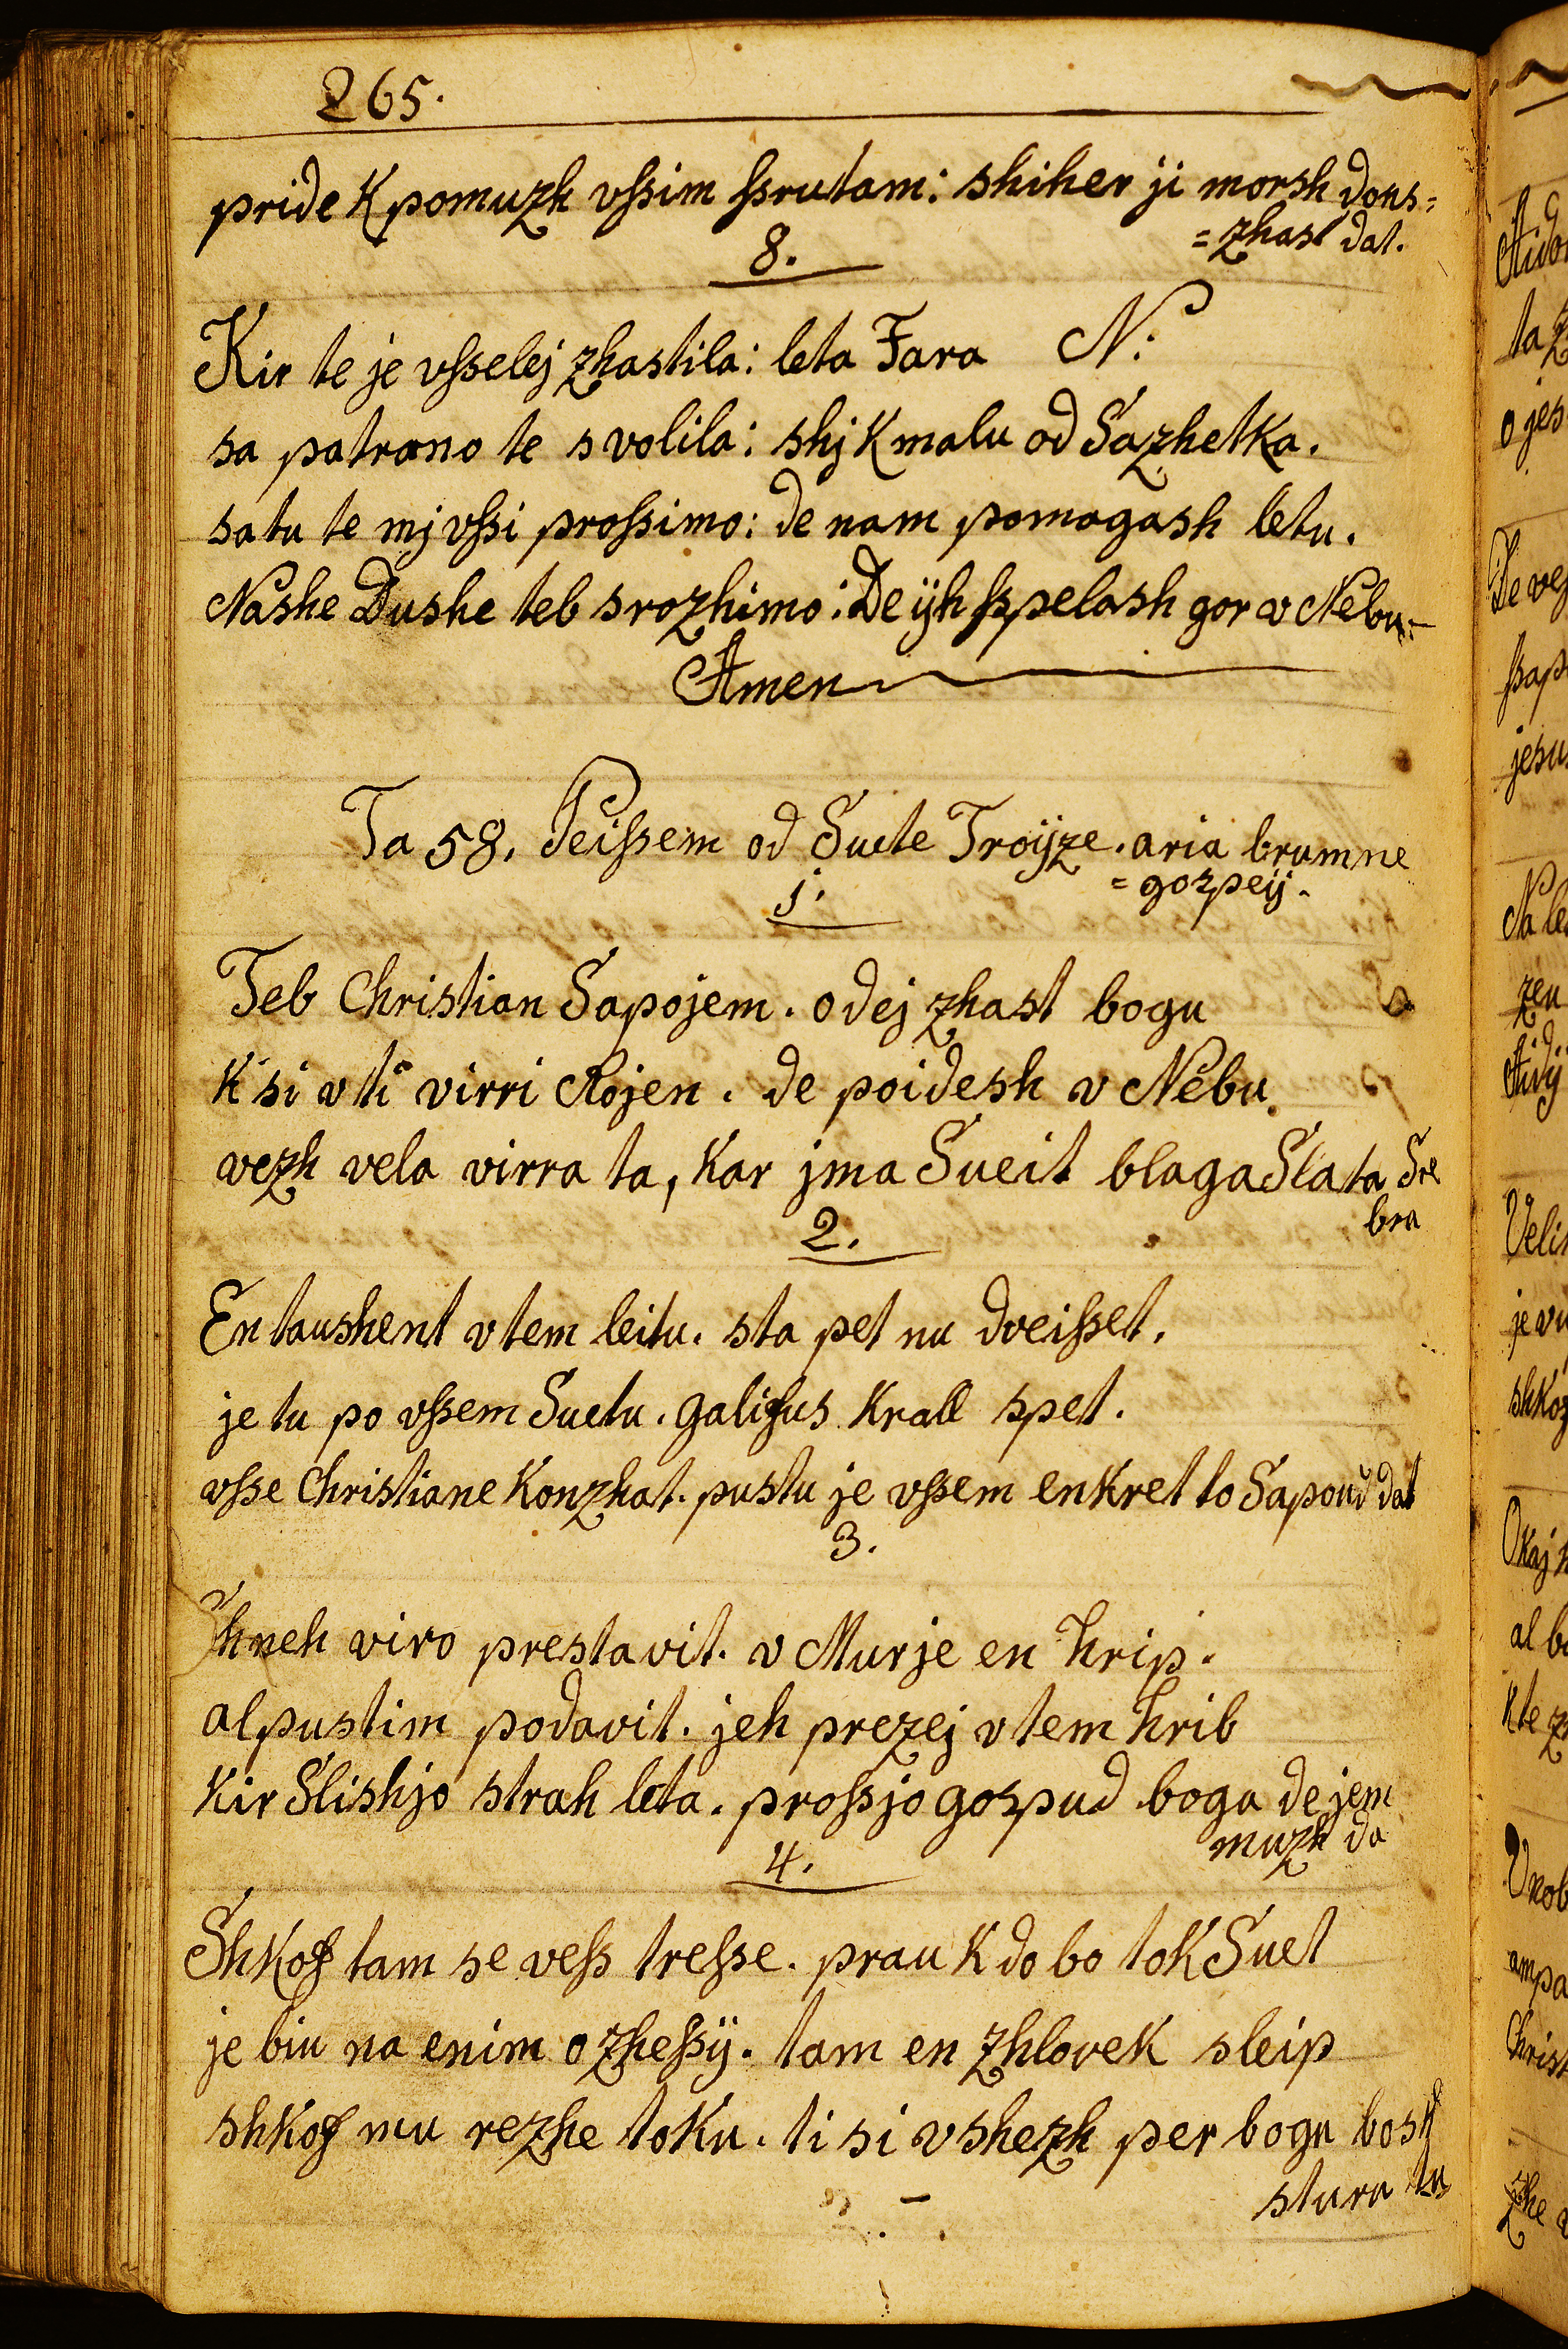 265.
pride k pomuzh vſsim ſsrutam: shiher ji morsh dons=
=zhast dat.
8.
Kir te je vſselej zhastila: leta Fara N:
sa patrono te svolila: shj kmalu od Sazhetka.
satu te mj vſsi proſsimo: de nam pomagash letu.
Nashe Dushe teb srozhimo: De ijh ſspelash gor v Nebu.
Amen
Ta 58. Peiſsem od Suete Troijze. aria brumne
=gozpeij.
1.
Teb Christian Sapojem. o dej zhast bogu
k si v ti virri Rojen. de poidesh v Nebu.
vezh vela virra ta, kar jma Sueit blaga Slata Sre
bra
2.
En taushent v tem leitu. sta pet nu dveiſset.
je tu po vſsem Suetu. galifus krall spet.
vſse Christiane konzhat. pustu je vſsem enkret to Sapoud dat
3.
viro prestavit. v Murje en hrip.
al pustim podavit. jeh prezej v tem hrib
kir Slishjo strah leta. proſsjo gozpud boga de jem
muzh da
4.
Shkof tam se veſs treſse. prau k do bo tok Suet
je biu na enim ozheſsij. tam en zhlovek sleip
shkof mu rezhe toku. ti si vshezh per bogu bosh
sturu tu